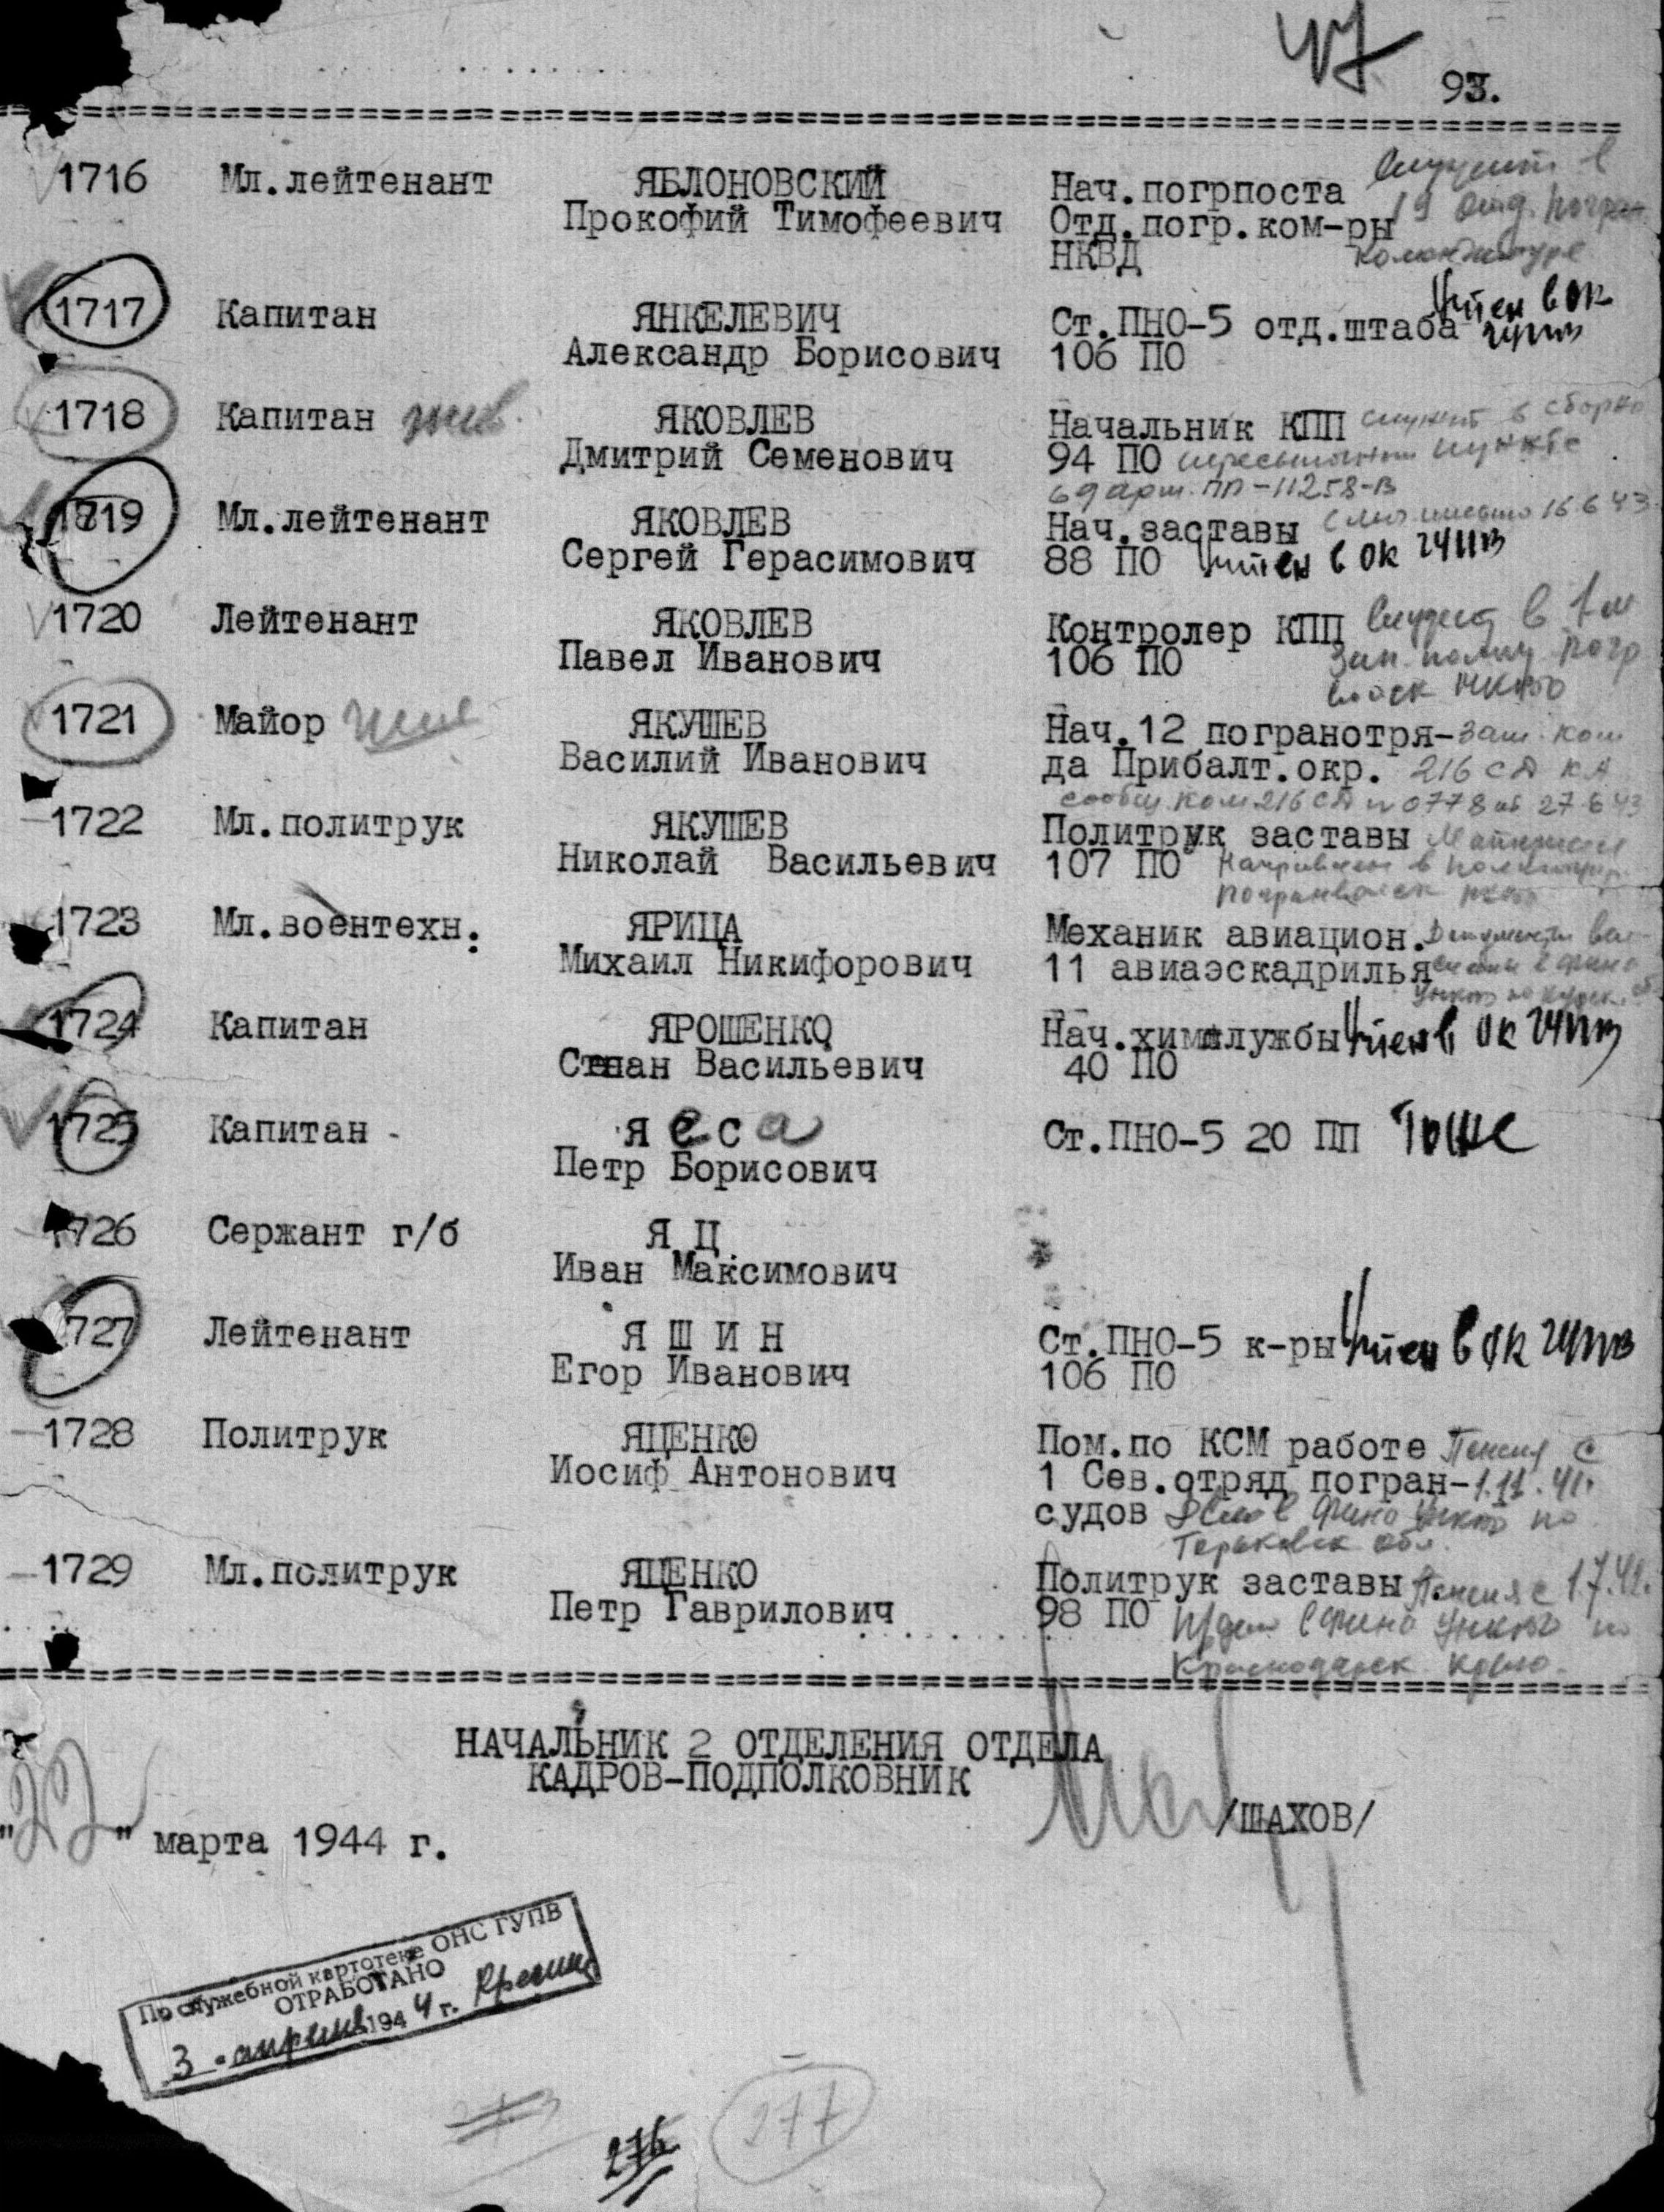 93.
1716 Мл.лейтенант ЯБЛОНОВСКИЙ Нач.погрпоста
Прокофий Тимофеевич Отд.погр.ком-ры 19 отд. погран.
НКВД комендатуре
1717 Капитан ЯНКЕЛЕВИЧ Ст.ПНО-5 отд.штаба Учтен в ОК
Александр Борисович 106 ПО ГУПВ
1718 Капитан жив. ЯКОВЛЕВ Начальник КПП служит в сборно
Дмитрий Семенович 94 ПО пересыльном пункте
69 арм. ПП-11258-В
1719 Мл.лейтенант ЯКОВЛЕВ Нач.заставы письмо 16 6 43
Сергей Герасимович 88 ПО Учтен в ОК ГУПВ
1720 Лейтенант ЯКОВЛЕВ Контролер КПП служит в 1м
Павел Иванович 106 ПО зап. полку погр
войск НКВД
1721 Майор жив ЯКУШЕВ Нач.12 погранотря- зам. ком
Василий Иванович да Прибалт.окр. 216 СД КА
сообщ. ком 216 СД № 0778 от 27.6 43
1722 Мл.политрук ЯКУШЕВ Политрук заставы
Николай Васильевич 107 ПО Направлен в политупр.
погранвойск НКВД
1723 Мл.воентехн. ЯРИЦА Механик авиацион. Документы
Михаил Никифорович 11 авиаэскадрилья в ФИНО
УНКВД по Курск. об
1724 Капитан ЯРОШЕНКО Нач.химслужбы Учтен в ОК ГУПВ
Степан Васильевич 40 ПО
1725 Капитан - Я е с а Ст.ПНО-5 20 ПП Тоже
Петр Борисович
1726 Сержант г/б Я Ц
Иван Максимович
1727 Лейтенант Я Ш И Н Ст.ПНО-5 к-ры Учтен в ОК ГУПВ
Егор Иванович 106 ПО
1728 Политрук ЯЦЕНКО Пом.по КСМ работе Пенсия с
Иосиф Антонович 1 Сев.отряд погран- 1.11.41.
судов Дело в ФИНО УНКВД по
Горьковск обл.
1729 Мл.политрук ЯЦЕНКО Политрук заставы Пенсия с 1.7.42.
Петр Гаврилович 98 ПО в ФИНО УНКВД по
Краснодарск. краю.
НАЧАЛЬНИК 2 ОТДЕЛЕНИЯ ОТДЕЛА
КАДРОВ-ПОДПОЛКОВНИК
/ШАХОВ/
"22" марта 1944 г.
По служебной картотеке ОНС ГУПВ
ОТРАБОТАНО
3 - апреля 1944 г.
273
276
277